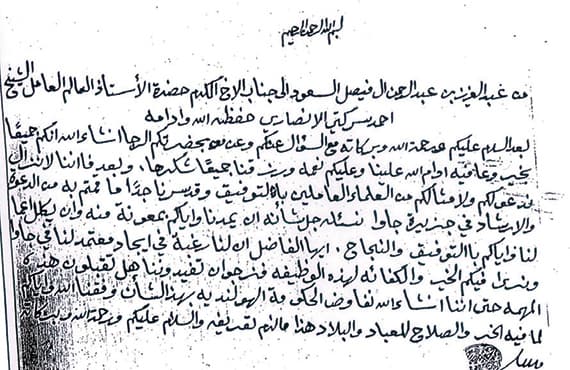 بسم الله الرحمن الرحيم
من عبد العزيز بن عبد الرحمن ال فيصل السعود الى جناب الاخ المكرم حضرة الأستاذ العالم العامل الشيخ
احمد سركتي الانصاري حفظه الله وادامه
بعد السلام عليكم ورحمة الله وبركاته مع السؤال عنكم وعن صحتكم الرجا انشاء الله انكم جميعًا
بخير وعافية ادام الله علينا وعليكم نعمه ورزقنا جميعًا شكرها، وبعد فاننا لانزال
ندعو لكم ولامثالكم من العلماء العاملين بالتوفيق وقد سرنا جدًا ما قمتم به من الدعوة
والارشاد في جزيرة جاوا نسئله جل شأنه ان يمدنا واياكم بمعونة منه وان يكلل اعما
لنا واياكم باالتوفيق والنجاح. ايها الفاضل ان لنا رغبة في ايجاد معتمد لنا في جاوا
ونرا فيكم الخير والكفائه لهذه الوظيفه فنرجو ان تفيدوننا هل تقبلون هذه
المهمه حتى اننا انشاء الله نفاوض الحكومة الهولنديه بهذا الشأن وفقنا الله واياكم
لما فيه الخير والصلاح للعباد والبلاد هذا مالزم تعريفه والسلام عليكم ورحمة الله وبركاته